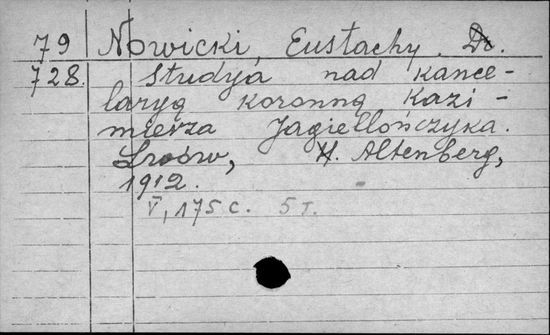 79 Nowicki, Eustachy. Dr.
728. Studyja nad kance-
laryą koronną Kazi-
mierza Jagiellończyka.
Lwów, H. Altenberg,
1912.
V, 175 c. 5 т.